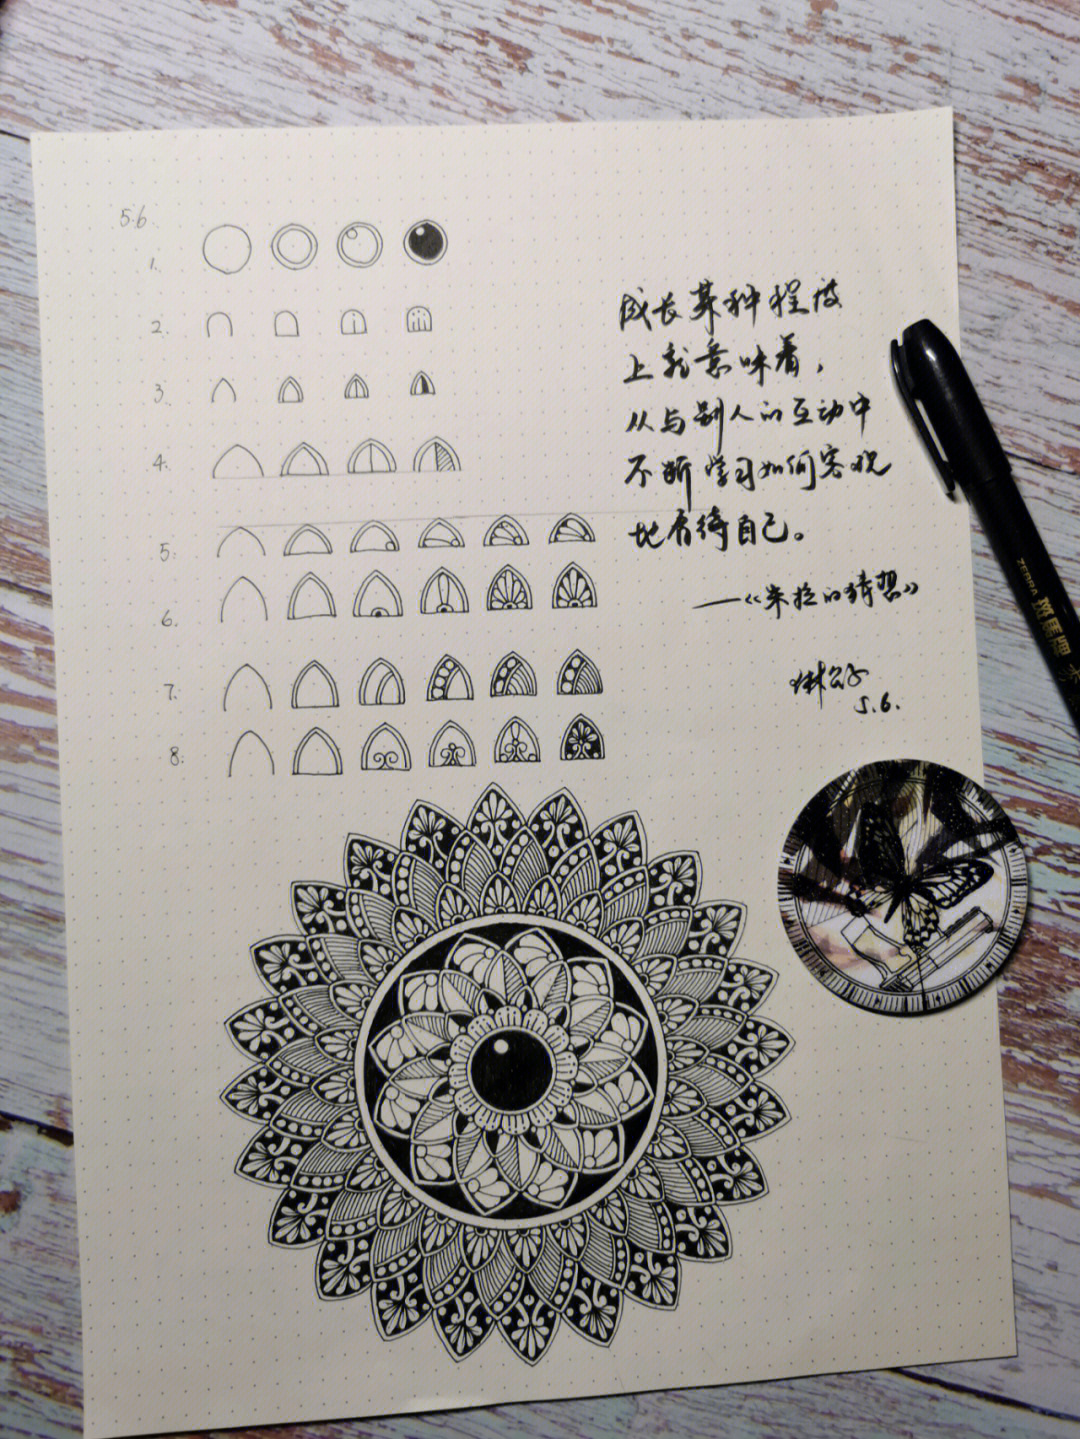 5.6
1.
2.
3.
4.
5.
6.
7.
8.
成长某种程度
上就意味着，
从与别人的互动中
不断学习如何客观
地看待自己。
——《米拉的猜想》
5.6.
ZEBRA 斑馬牌